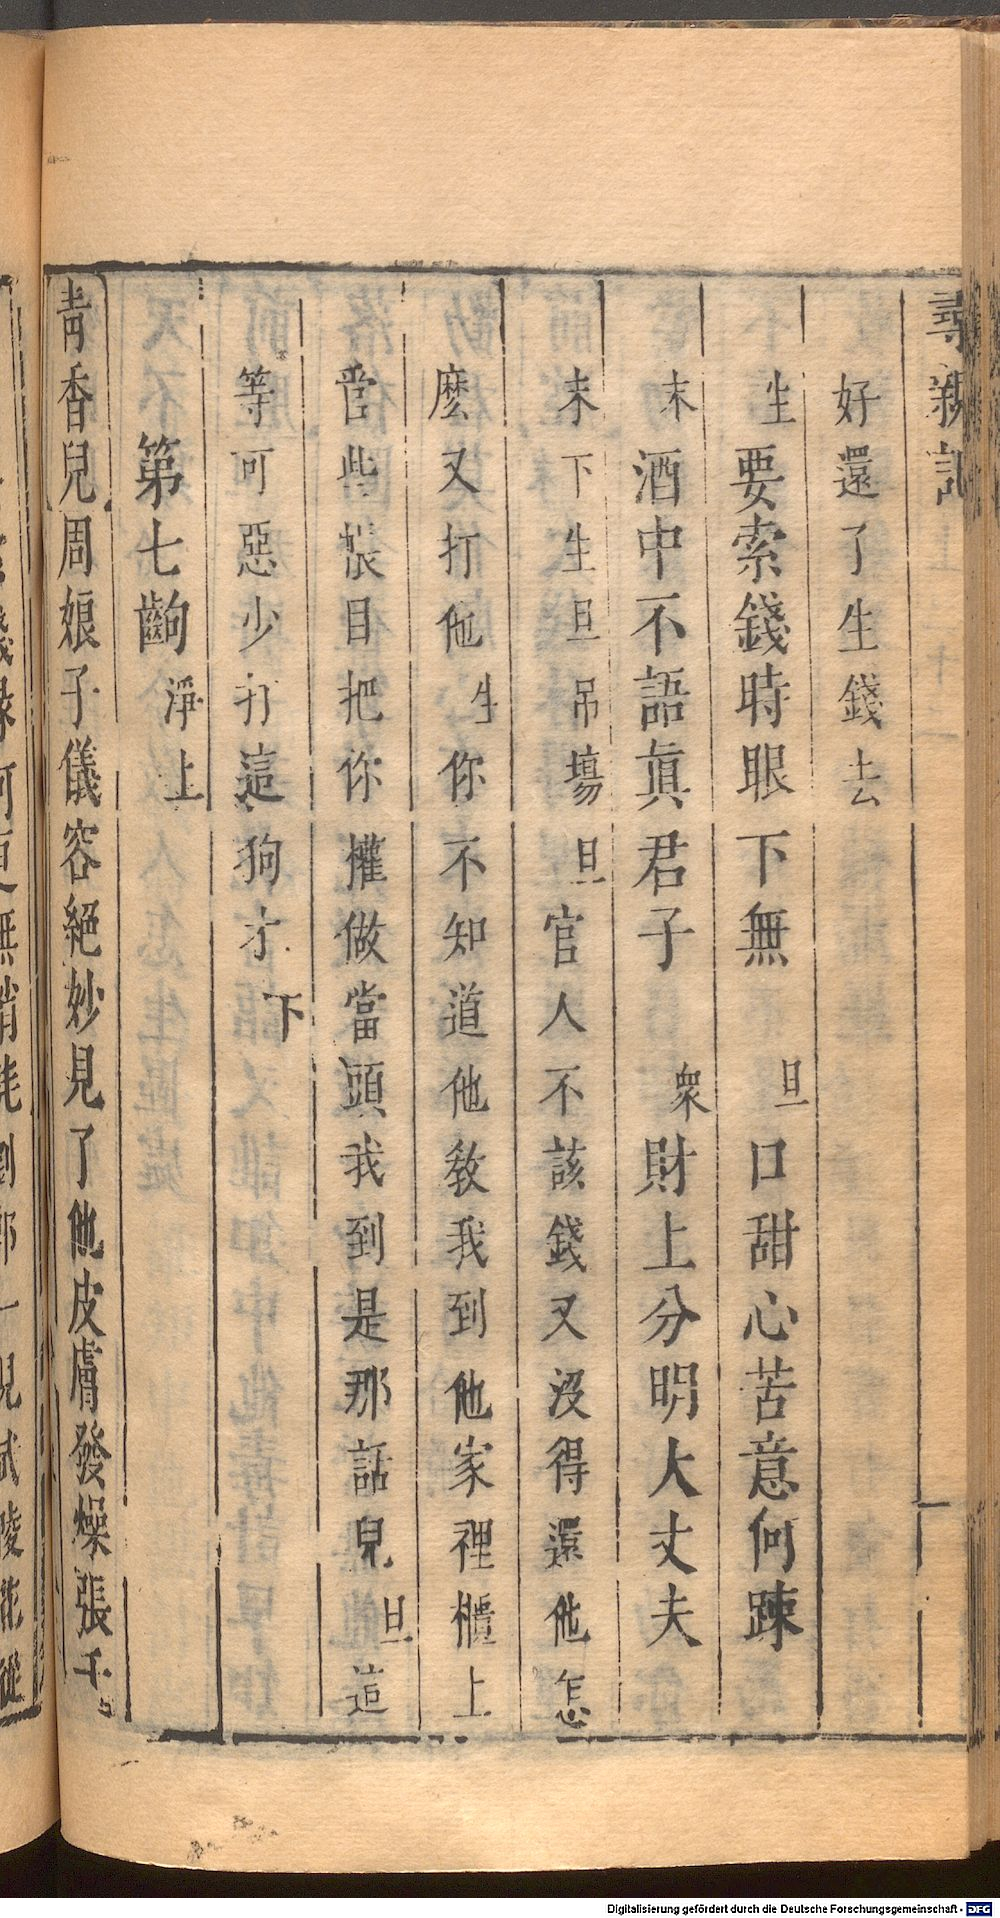 尋親記
好還了生錢去
生 要索錢時眼下無 旦 口甜心苦意何踈
末 酒中不語眞君子 衆 財上分明大丈夫
末下生旦吊塲 旦 官人不該錢又沒得還他怎
麽又打他 生 你不知道他教我到他家裡櫃上
啓些帳目把你權做當頭我到是那話兒 旦 這
等可惡少打這狗才 下
第七齣 淨上
青香兒周娘子儀容絕妙見了他皮膚發燥張千
Digitalisierung gefördert durch die Deutsche Forschungsgemeinschaft - DFG